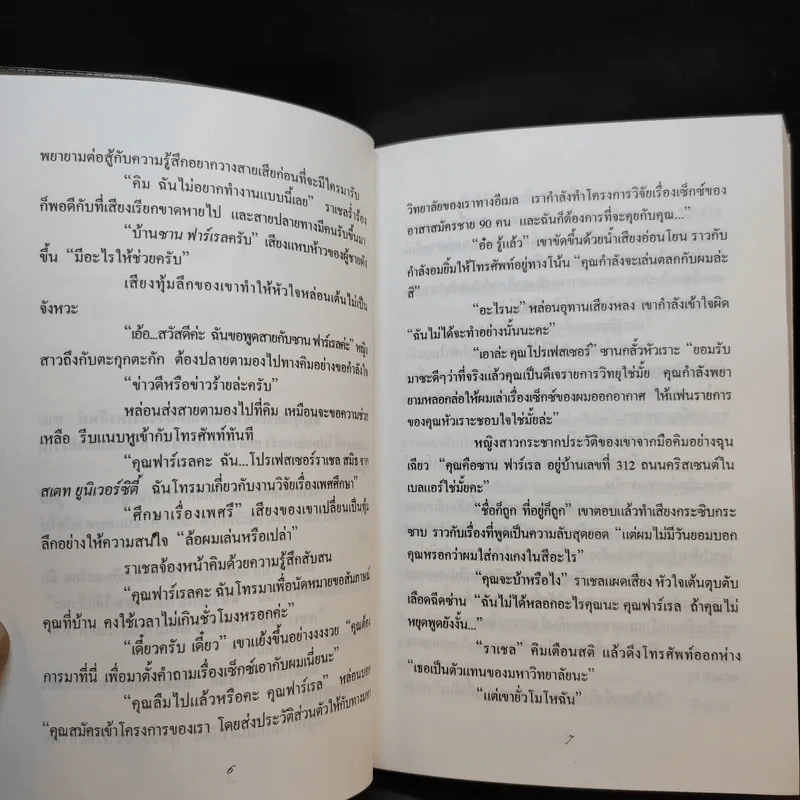 พยายามต่อสู้กับความรู้สึกอยากวางสายเสียก่อนที่จะมีใครมารับ
“คิม ฉันไม่อยากทำงานแบบนี้เลย” ราเชลร่ำร้อง
ก็พอดีกับที่เสียงเรียกขาดหายไป และสายปลายทางมีคนรับขึ้นมา
“บ้านซาน ฟาร์เรลครับ” เสียงแหบห้าวของผู้ชายดัง
ขึ้น “มีอะไรให้ช่วยครับ”
เสียงทุ้มลึกของเขาทำให้หัวใจหล่อนเต้นไม่เป็น
จังหวะ
“เอ้อ...สวัสดีค่ะ ฉันขอพูดสายกับซาน ฟาร์เรลค่ะ” หญิง
สาวถึงกับตะกุกตะกัก ต้องปลายตามองไปทางคิมอย่างขอกำลังใจ
“ข่าวดีหรือข่าวร้ายล่ะครับ”
หล่อนส่งสายตามองไปที่คิม เหมือนจะขอความช่วย
เหลือ รีบแนบหูเข้ากับโทรศัพท์ทันที
“คุณฟาร์เรลคะ ฉัน...โปรเฟสเซอร์ราเชล สมิธ จาก
สเตท ยูนิเวอร์ซิตี้ ฉันโทรมาเกี่ยวกับงานวิจัยเรื่องเพศศึกษา”
“ศึกษาเรื่องเพศรึ” เสียงของเขาเปลี่ยนเป็นทุ้ม
ลึกอย่างให้ความสนใจ “ล้อผมเล่นหรือเปล่า”
ราเชลจ้องหน้าคิมด้วยความรู้สึกสับสน
“คุณฟาร์เรลคะ ฉันโทรมาเพื่อนัดหมายขอสัมภาษณ์
คุณที่บ้าน คงใช้เวลาไม่เกินชั่วโมงหรอกค่ะ”
“เดี๋ยวครับ เดี๋ยว” เขาแย้งขึ้นอย่างงงงวย “คุณต้อง
การมาที่นี่ เพื่อมาตั้งคำถามเรื่องเซ็กซ์เอากับผมเนี่ยนะ”
“คุณลืมไปแล้วหรือคะ คุณฟาร์เรล” หล่อนบอก
“คุณสมัครเข้าโครงการของเรา โดยส่งประวัติส่วนตัวให้กับทางมหา
6
วิทยาลัยของเราทางอีเมล เรากำลังทำโครงการวิจัยเรื่องเซ็กซ์ของ
อาสาสมัครชาย 90 คน และฉันก็ต้องการที่จะคุยกับคุณ...”
“อ๋อ รู้แล้ว” เขาขัดขึ้นด้วยน้ำเสียงอ่อนโยน ราวกับ
กำลังอมยิ้มให้โทรศัพท์อยู่ทางโน้น “คุณกำลังจะเล่นตลกกับผมล่ะ
สิ”
“อะไรนะ” หล่อนอุทานเสียงหลง เขากำลังเข้าใจผิด
“ฉันไม่ได้จะทำอย่างนั้นนะคะ”
“เอาล่ะ คุณโปรเฟสเซอร์” ซานกลั้วหัวเราะ “ยอมรับ
มาซะดีๆว่าที่จริงแล้วคุณเป็นดีเจรายการวิทยุใช่มั้ย คุณกำลังพยา
ยามหลอกล่อให้ผมเล่าเรื่องเซ็กซ์ของผมออกอากาศ ให้แฟนรายการ
ของคุณหัวเราะชอบใจใช่มั้ยล่ะ”
หญิงสาวกระชากประวัติของเขาจากมือคิมอย่างฉุน
เฉียว “คุณคือซาน ฟาร์เรล อยู่บ้านเลขที่ 312 ถนนคริสเซนต์ใน
เบลแอร์ใช่มั้ยคะ”
“ชื่อก็ถูก ที่อยู่ก็ถูก” เขาตอบแล้วทำเสียงกระซิบกระ
ซาบ ราวกับเรื่องที่พูดเป็นความลับสุดยอด “แต่ผมไม่มีวันยอมบอก
คุณหรอกว่าผมใส่กางเกงในสีอะไร”
“คุณจะบ้าหรือไง” ราเชลแผดเสียง หัวใจเต้นตุบตับ
เลือดฉีดซ่าน “ฉันไม่ได้หลอกอะไรคุณนะ คุณฟาร์เรล ถ้าคุณไม่
หยุดพูดยังงั้น...”
“ราเชล” คิมเตือนสติ แล้วดึงโทรศัพท์ออกห่าง
“เธอเป็นตัวแทนของมหาวิทยาลัยนะ”
“แต่เขายั่วโมโหฉัน”
7